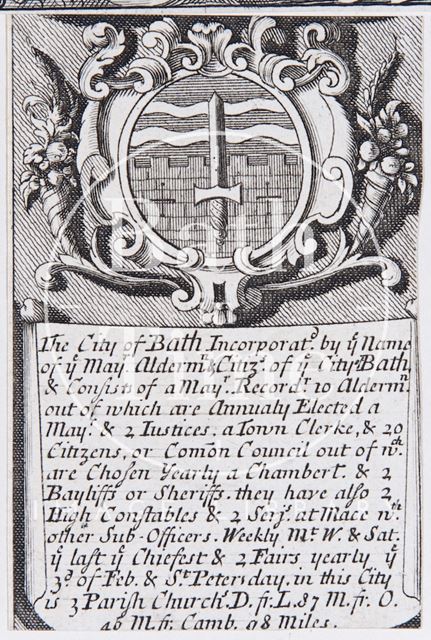 The City of Bath Incorporat.d by ye Name
of ye May.r Alderm.n & Citiz.s of ye City Bath
& Consists of a May.r Record.r 10 Alderm.n
out of which are Annualy Elected a
May.r & 2 Iustices, a Town Clerke, & 20
Citizens, or Comōn Council out of w.ch
are Chosen Yearly a Chambert. & 2
Bayliffs or Sheriffs. they have also 2
High Constables & 2 Serj.s at Mace w.th
other Sub-Officers. Weekly M.t W. & Sat.
ye last ye Chiefest & 2 Fairs yearly ye
3.d of Feb. & S.t Peters day, in this City
is 3 Parish Church.s D. fr. L. 87 M. fr. O.
46 M. fr. Camb. 98 Miles.
Bath